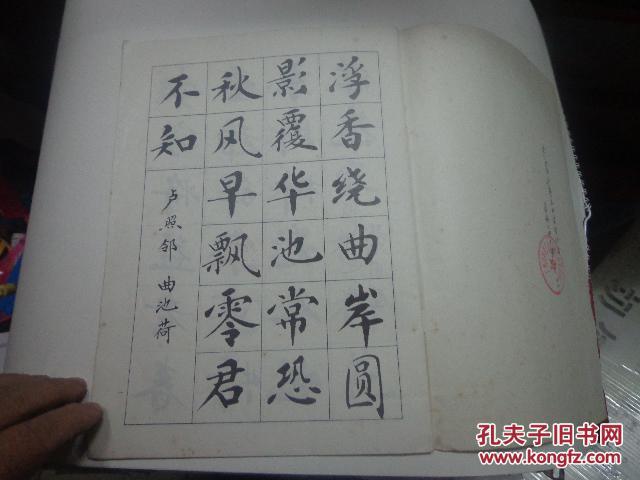 浮香绕曲岸圆
影覆华池常恐
秋风早飘零君
不知
卢照邻 曲池荷
孔夫子旧书网
www.kongfz.com